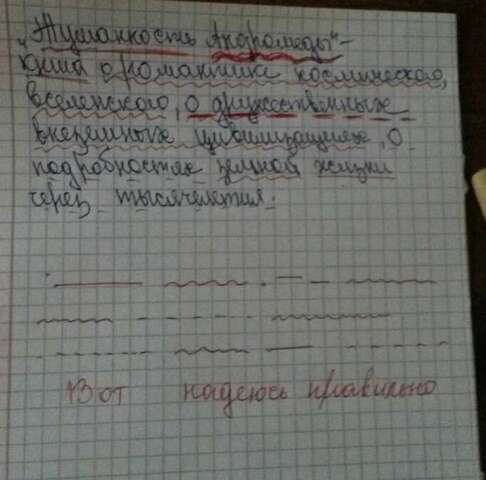 „Туманность Андромеды" –
книга о романтике космического,
вселенского, о дружественных
внеземных цивилизациях, о
подробностях земной жизни
через тысячелетия.
Вот надеюсь правильно